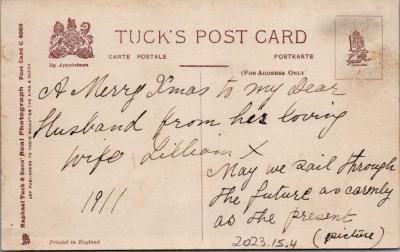 TUCK'S POST CARD
By Appointment
CARTE POSTALE
POSTKARTE
(FOR ADDRESS ONLY
Raphael Tuck & Sons' Real Photograph Post Card C 4005
ART PUBLISHERS TO THEIR MAJESTIES THE KING & QUEEN.
A Merry Xmas to my dear
Husband from her loving
wife Lillian X
1911
May we sail through
the future as carmly
as the present
(picture)
2023.15.4
Printed in England